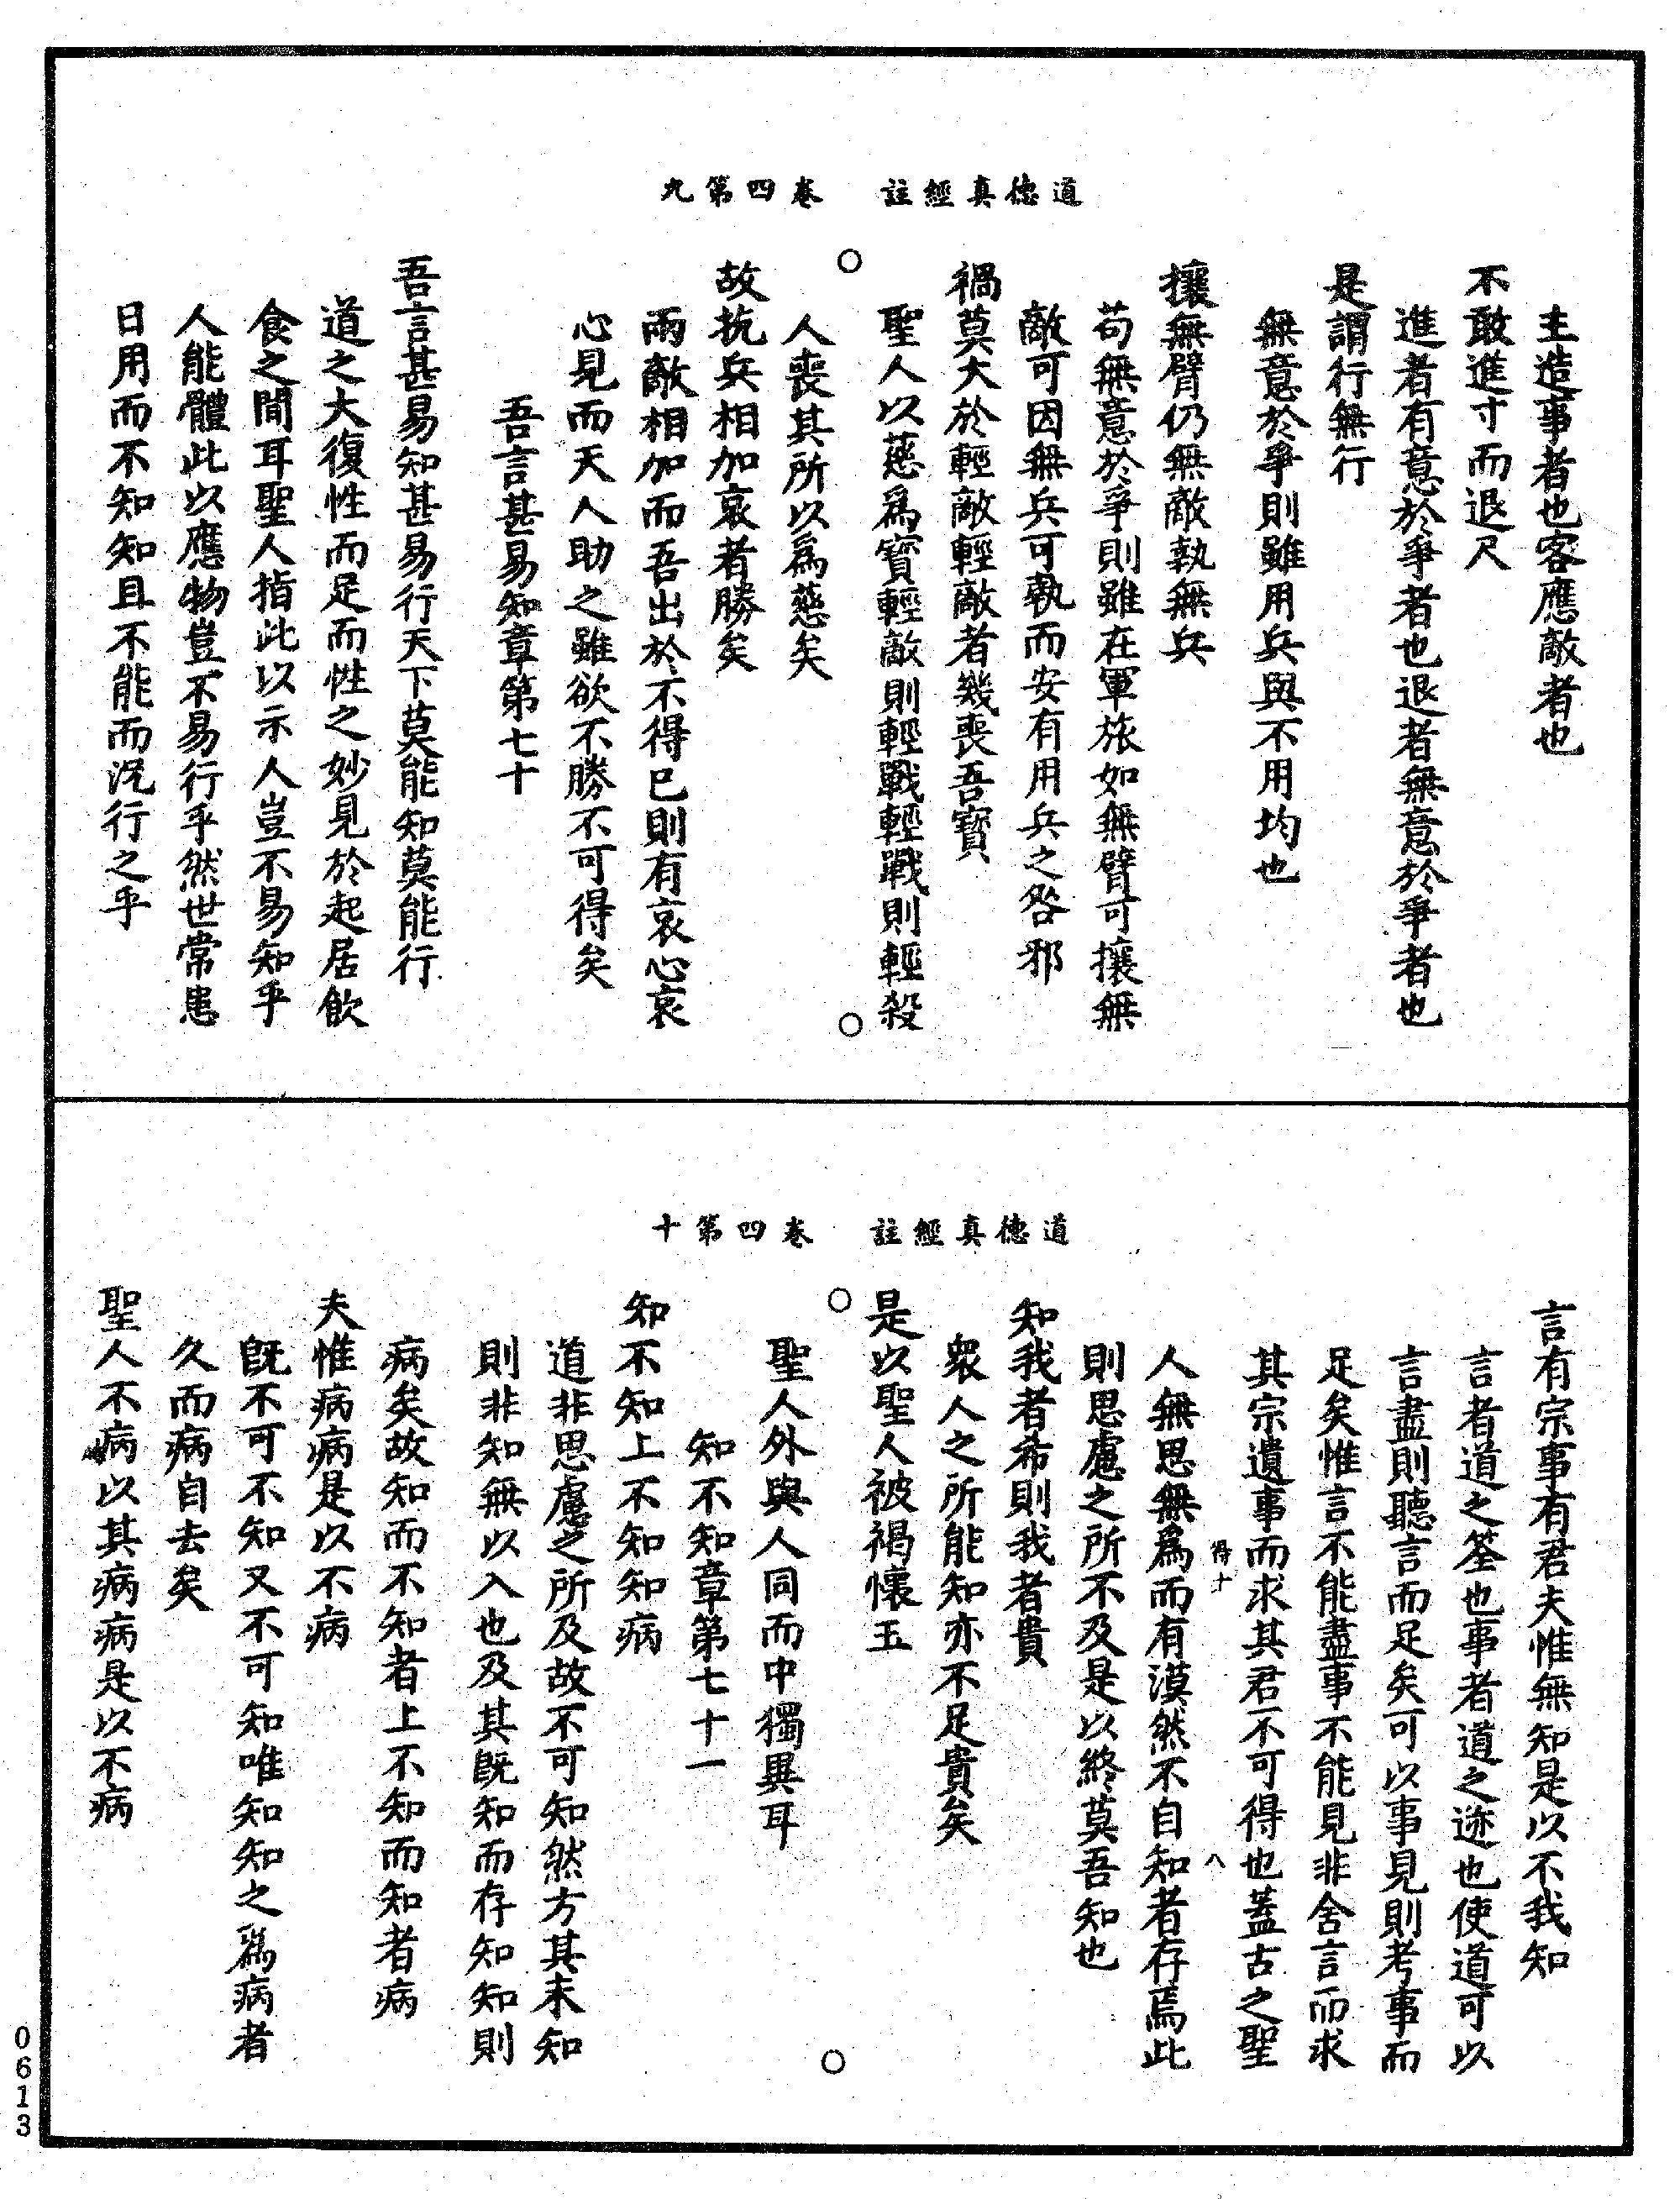 道德真經註　卷四第九
主造事者也客應敵者也
不敢進寸而退尺
進者有意於爭者也退者無意於爭者也
是謂行無行
無意於爭則雖用兵與不用均也
攘無臂仍無敵執無兵
苟無意於爭則雖在軍旅如無臂可攘無
敵可因無兵可執而安有用兵之咎邪
禍莫大於輕敵輕敵者幾喪吾寶
聖人以慈爲寶輕敵則輕戰輕戰則輕殺
人喪其所以爲慈矣
故抗兵相加哀者勝矣
兩敵相加而吾出於不得已則有哀心哀
心見而天人助之雖欲不勝不可得矣
吾言甚易知章第七十
吾言甚易知甚易行天下莫能知莫能行
道之大復性而足而性之妙見於起居飲
食之間耳聖人指此以示人豈不易知乎
人能體此以應物豈不易行乎然世常患
日用而不知知且不能而況行之乎
道德真經註　卷四第十
言有宗事有君夫惟無知是以不我知
言者道之筌也事者道之迹也使道可以
言盡則聽言而足矣可以事見則考事而
足矣惟言不能盡事不能見非舍言而求
其宗遺事而求其君不可得也蓋古之聖
得十　八
人無思無爲而有漠然不自知者存焉此
則思慮之所不及是以終莫吾知也
知我者希則我者貴
衆人之所能知亦不足貴矣
是以聖人被褐懷玉
聖人外與人同而中獨異耳
知不知章第七十一
知不知上不知知病
道非思慮之所及故不可知然方其未知
則非知無以入也及其既知而存知知則
病矣故知而不知者上不知而知者病
夫惟病病是以不病
既不可不知又不可知唯知知之爲病者
久而病自去矣
聖人不病以其病病是以不病
0613